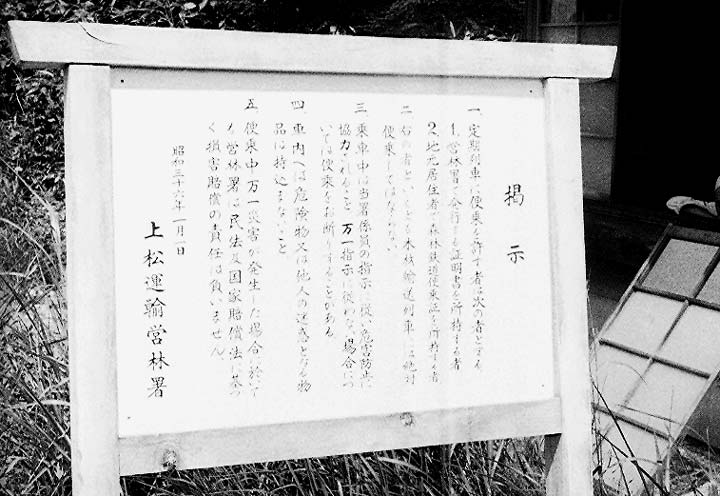 掲示
一、定期列車に便乗を許す者は次の者とする
1.営林署で発行する証明書を所持する者
2.地元居住者で森林鉄道便乗証を所持する者
二、右の者といえども本線輸送列車には絶対
便乗してはならない
三、乗車中は当署係員の指示に従い危害防止に
協力されること 万一指示に従わない場合につ
いては便乗をお断りすることがある
四、車内へは危険物又は他人の迷惑となる物
品は持込まないこと
五、便乗中万一災害が発生した場合に於いて
も営林署は民法及国家賠償法に基づ
く損害賠償の責任は負いません
昭和三十六年一月一日
上松運輸営林署